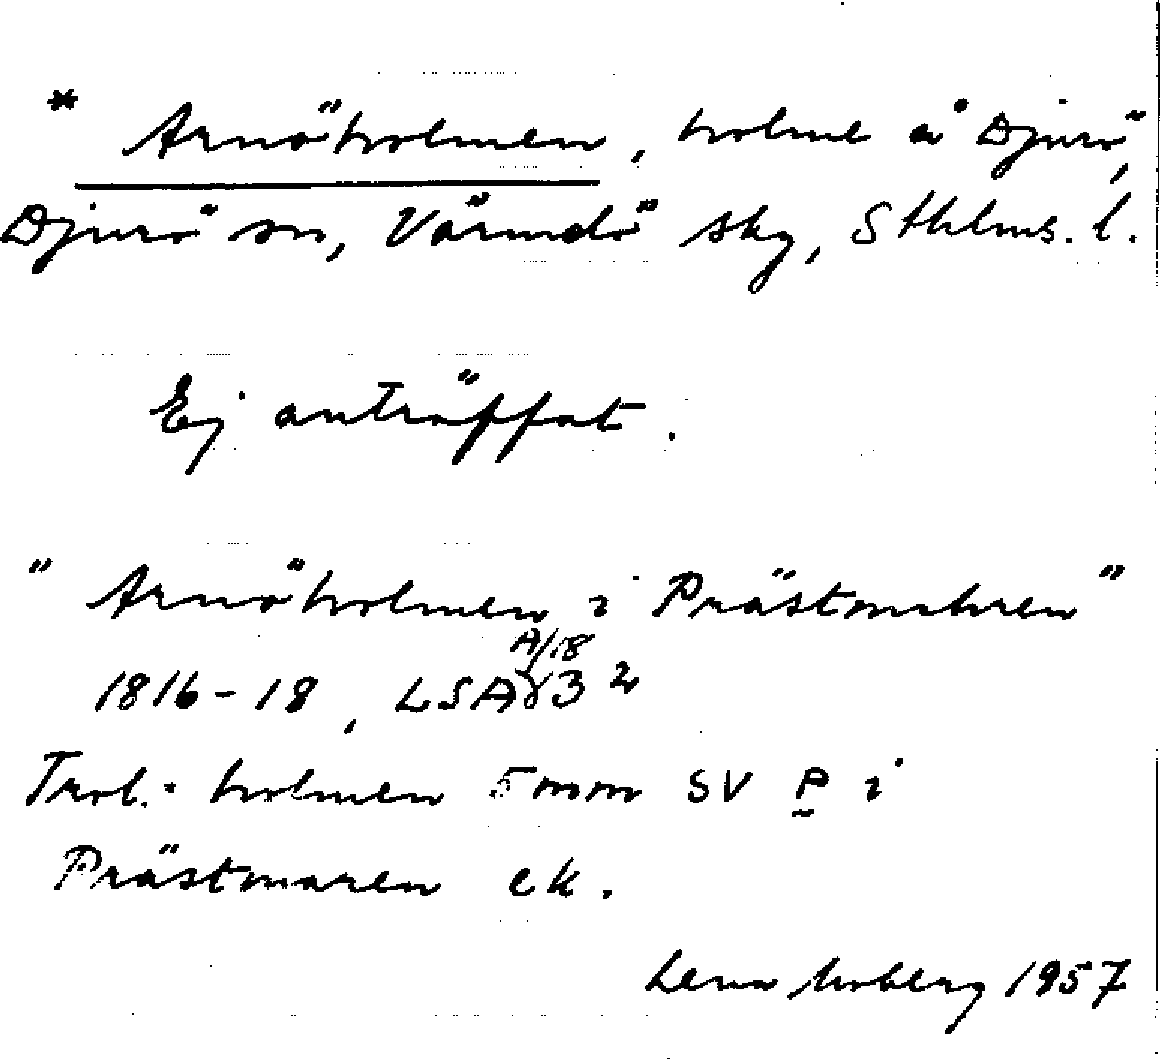 * Arnöholmen, holme å Djurö,
Djurö sn, Värmdö skg, Sthlms. l.
Ej anträffat.
" Arnöholmen i Prästmahren "
A/18
1816-18, LSA γ3 2
Trol. holmen 5 mm SV P i
Prästmaren ek.
Lena Moberg 1957